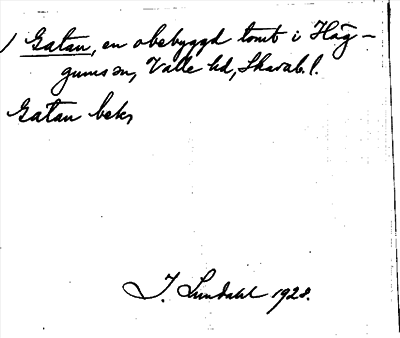 ) Gatan, en obebyggd tomt i Häg-
gums sn, Valle hd, Skarab. l.
Gatan bek,
I. Lundahl 1928.